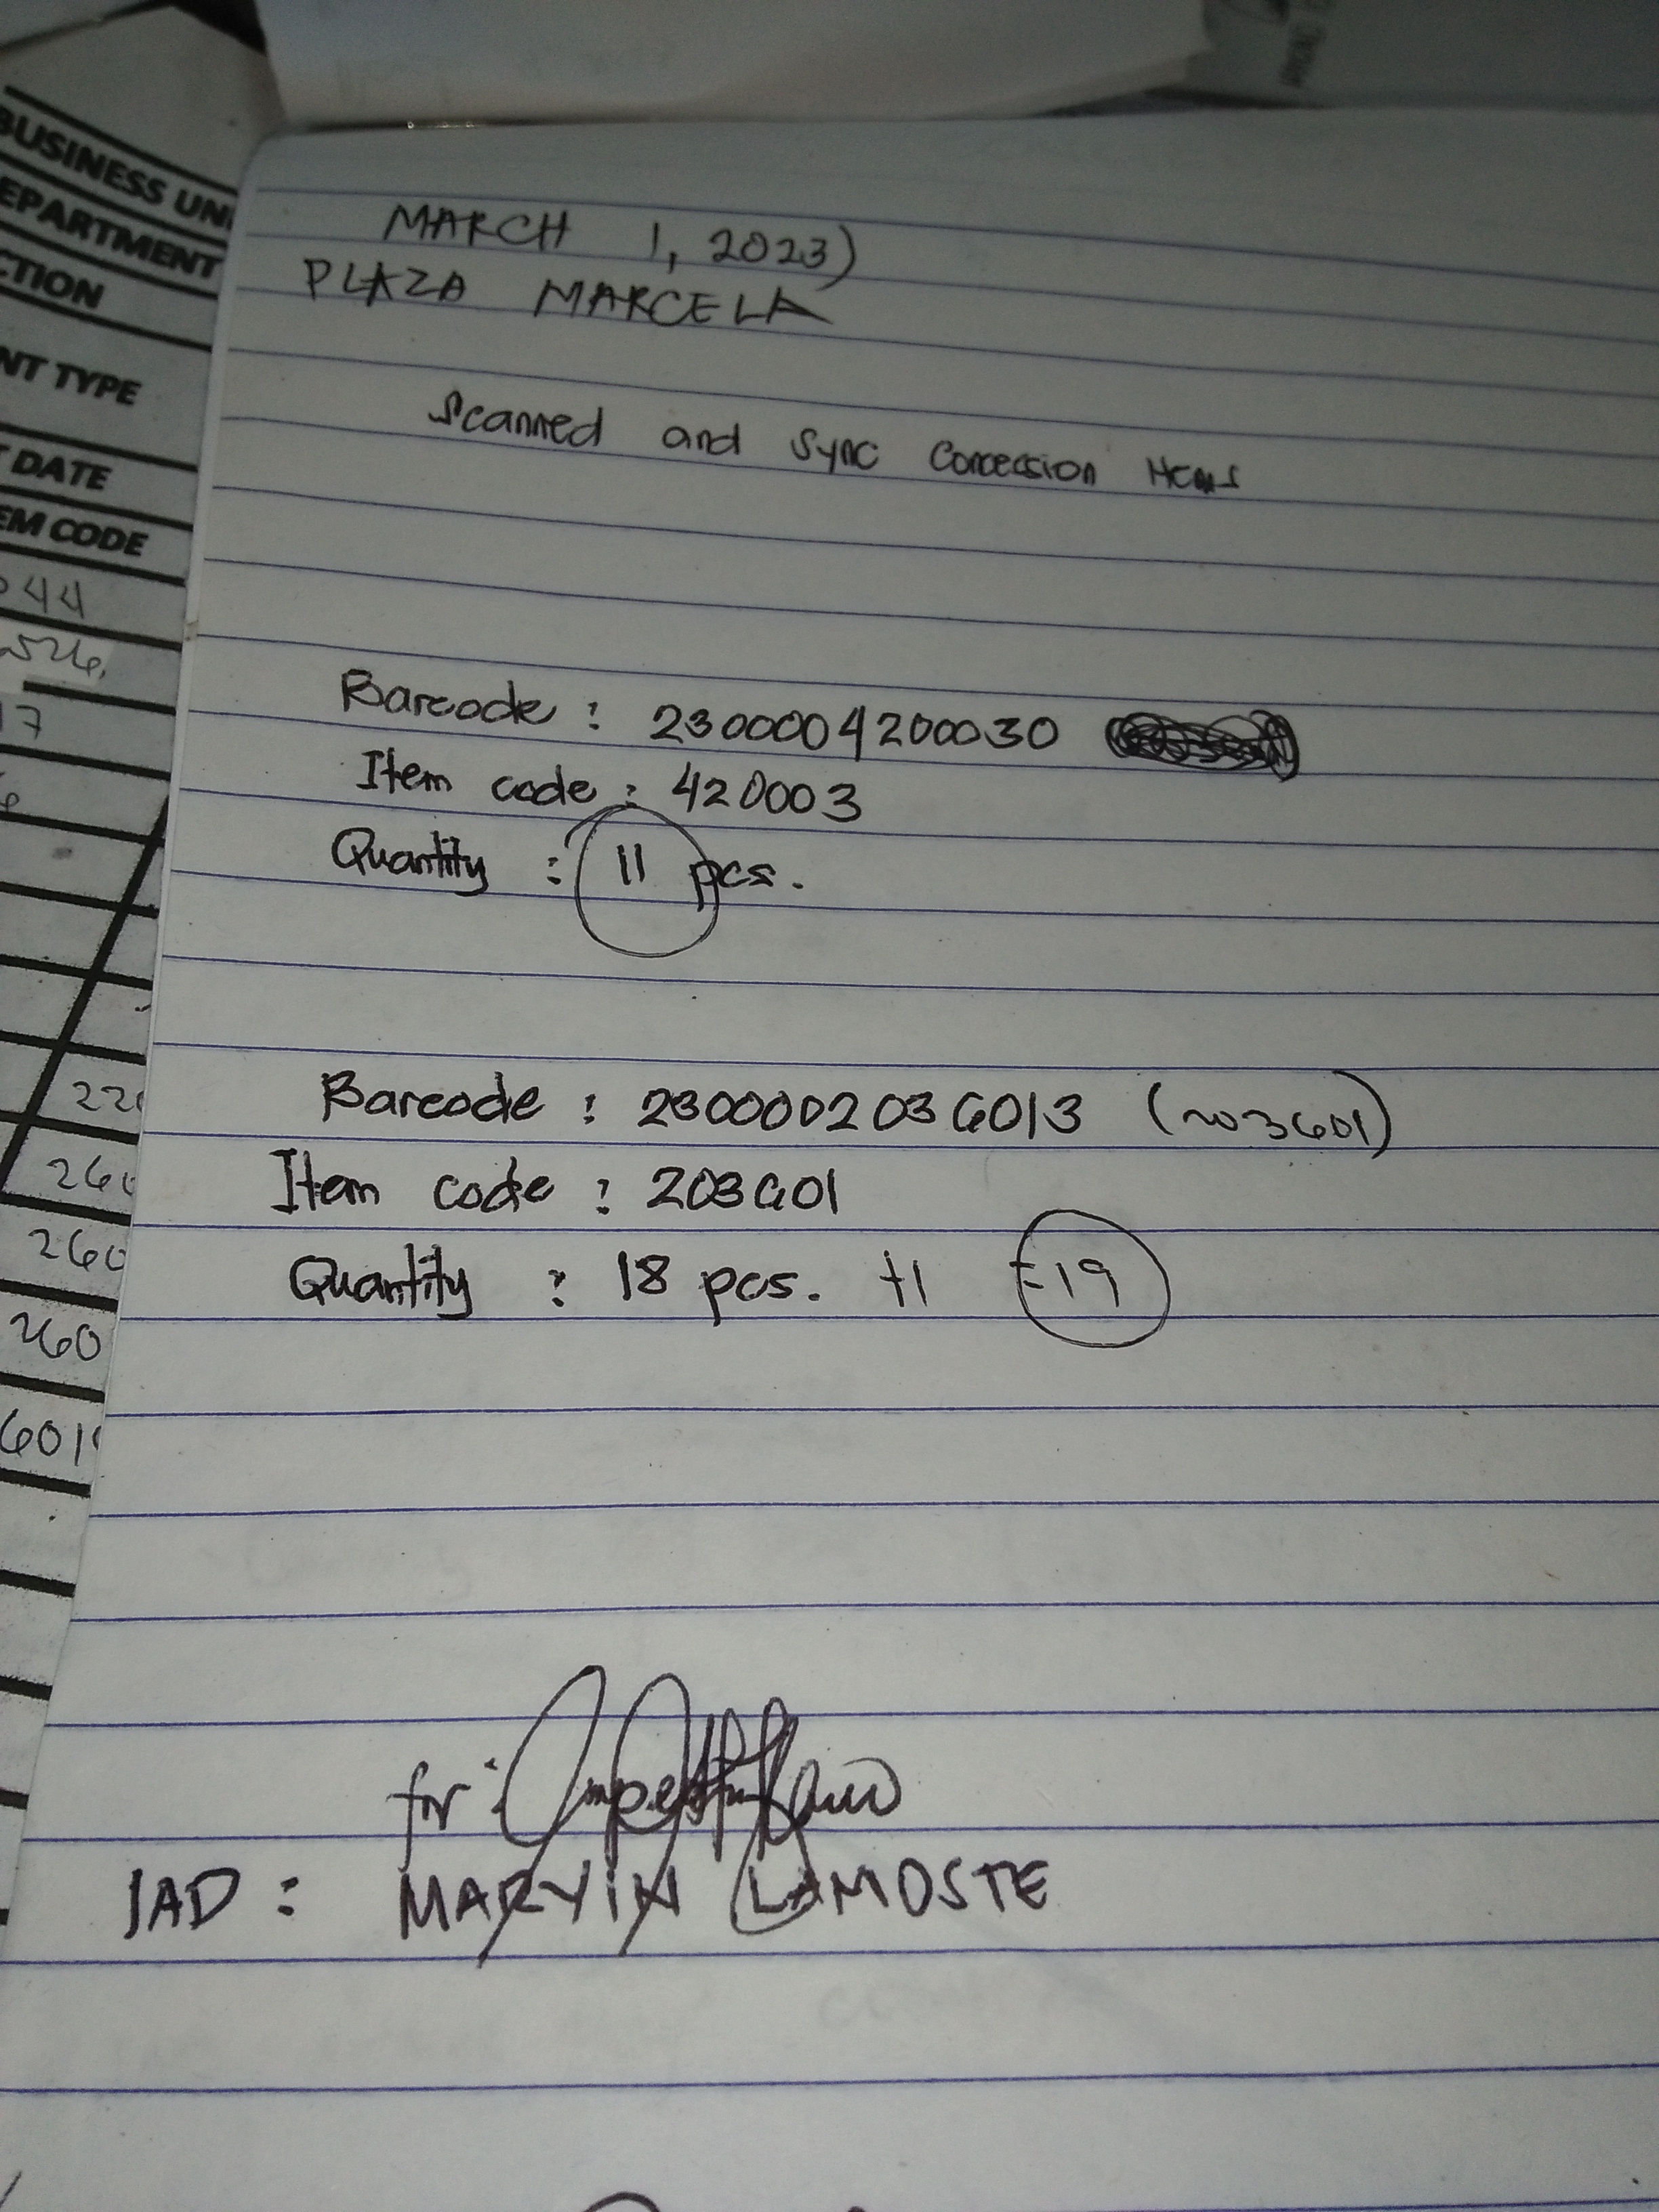 BUSINESS UN
EPARTMENT
CTION
NT TYPE
DATE
EM CODE
044
526
17
220
260
260
260
601
MARCH 1, 2023)
PLAZA MARCELA
Scanned and Sync Concession Items
Barcode : 2300004200030
Item code : 420003
Quantity : 11 pcs.
Barcode : 2300002036013 (203601)
Item code : 203601
Quantity : 18 pcs. +1 =19
for :
IAD : MARVIN LAMOSTE